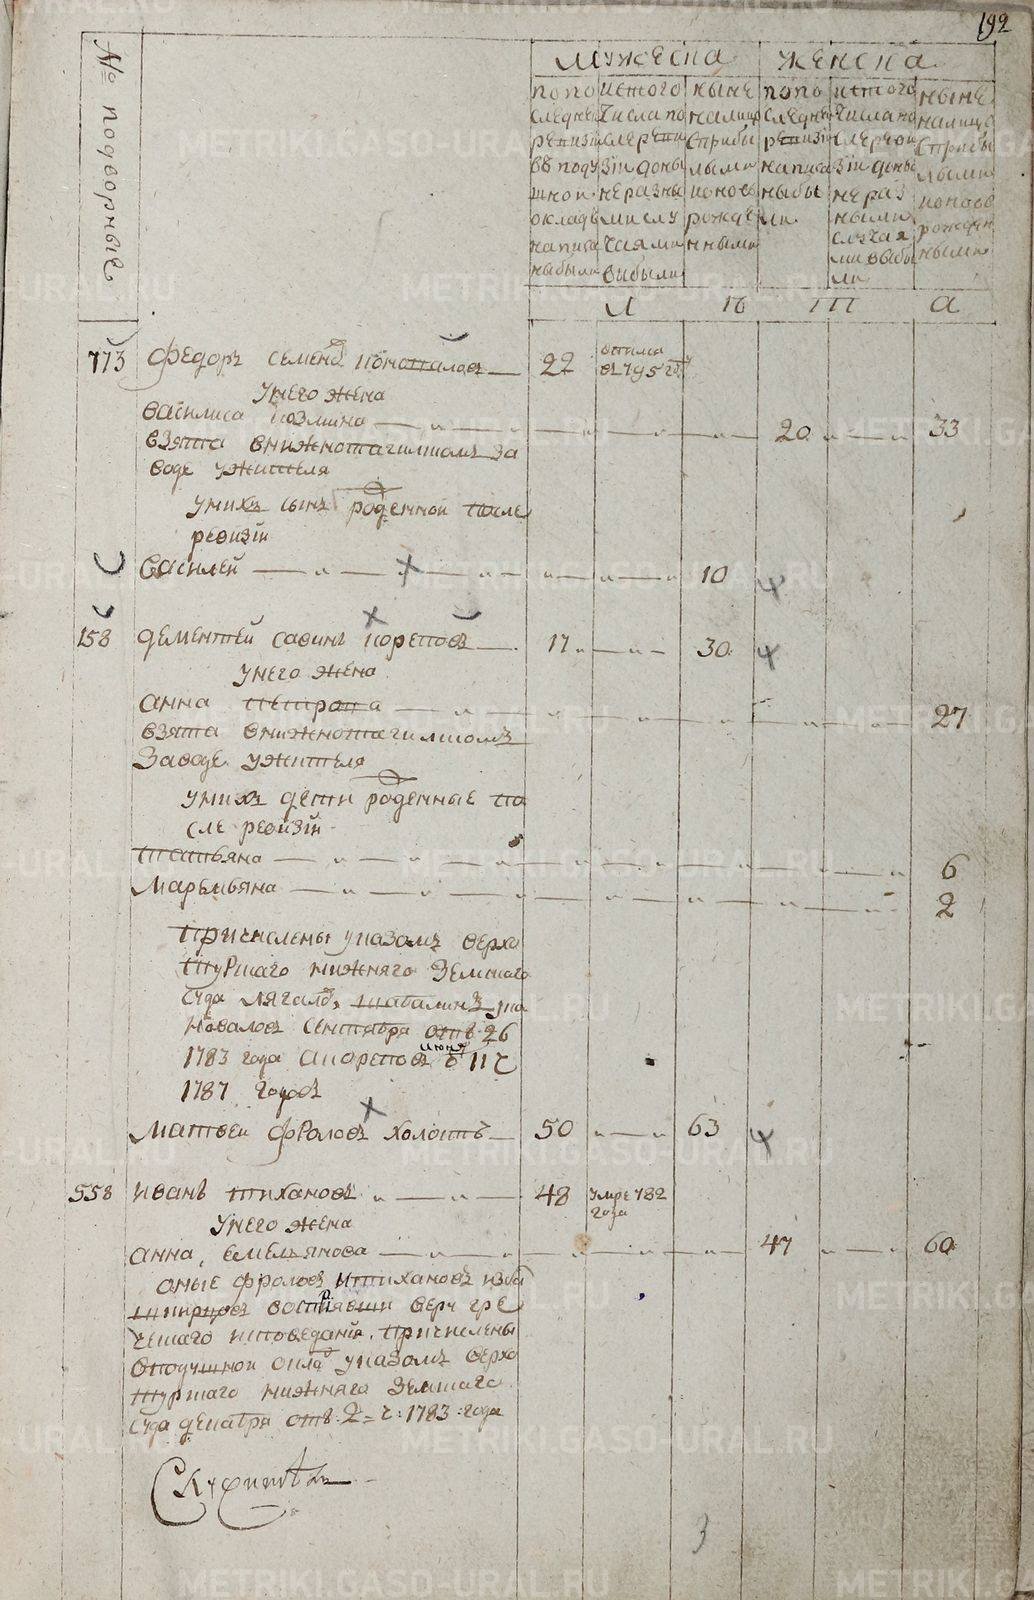 192
№ подворные
Мужеска
Женска
по последней ревизии въ подушной окладъ написаны были
ис того числа после ревизии до ныне разными случаями выбыли
ныне налицо с прибылыми и новорожденными
по последней ревизии написаны были
ис того числа после ревизии до ныне разными случаями выбыли
ныне налицо с прибылыми и новорожденными
Л
Ю
Ш
А
773 Федоръ Семенов 22
в 1795 году
У него жена
Василиса 20 33
Взята в Нижнотагильском за
воде у жителя
У нихъ сынъ рожденной после
ревизіи
Василей 10
158 Дементей Савинъ 17 30
У него жена
Анна Петрова 27
Взята в Нижнотагильскомъ
Заводе у жителя
У нихъ дети рожденные по
сле ревизіи
Татьяна 6
Маремьяна 2
Причислены указомъ Верхо
турскаго Нижняго Земскаго
Суда
Сентября отъ 26
1783 года июня 11 ч
1787 годовъ
Матвеи Фроловъ холостъ 50 63
558 Иванъ Тихановъ 48 умре 782
года
У него жена
Анна Емельянова 47 60
Оные Фроловъ и Тихановъ из ба
шкирцовъ восприявши веру гре
ческаго исповеданія. Причислены
в подушной оклад указомъ Верхо
турскаго Нижняго Земскаго
Суда декабря отъ 2 = ч: 1783: года
3
METRIKI.GASO-URAL.RU